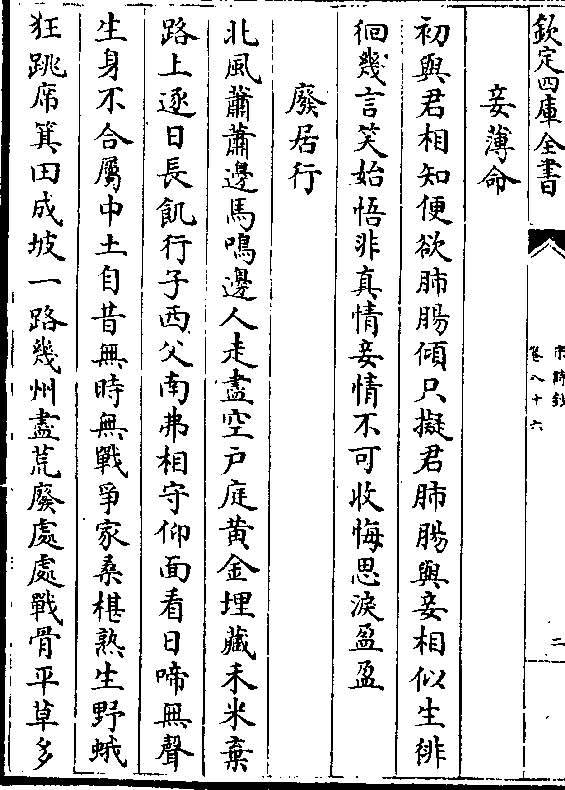 欽定四庫全書
宋詩鈔
卷八十六
二
妾薄命
初與君相知便欲肺腸傾只擬君肺腸與妾相似生徘
徊幾言笑始悟非真情妾情不可收悔思淚盈盈
廢居行
北風蕭蕭邊馬鳴邊人走盡空戸庭黄金埋藏禾米棄
路上逐日長飢行子西父南弗相守仰面看日啼無聲
生身不合屬中土自昔無時無戰爭家桑椹熟生野蛾
狂跳席箕田成坡一路幾州盡荒廢處處戰骨平草多